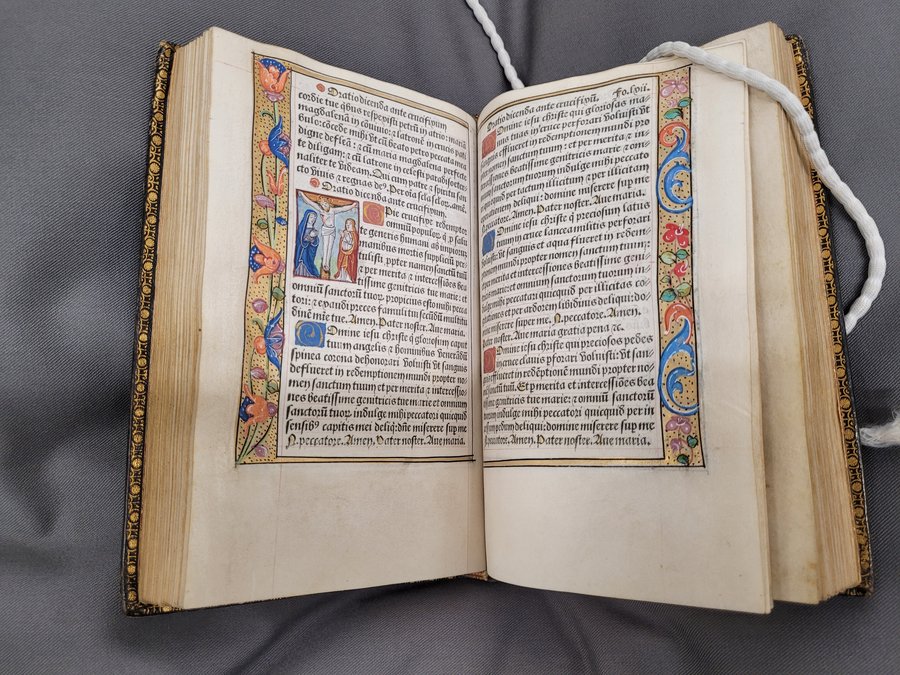 Oratio dicenda ante crucifixum
cordie tue q̃bus respexisti petrũ in atrio: mariã
magdalenã in cõuiuio: ⁊ latronẽ in crucis pati
bulo: cõcede mihi vt cũ beato petro peccata mea
digne defleã: ⁊ cũ maria magdalena perfecte
te diligam: ⁊ cũ latrone in celesti paradiso eter⸗
naliter te videam. Qui cum patre ⁊ spiritu san
cto viuis ⁊ regnas de⁹. Per oĩa scľa scľor. amẽ.
Oratio dicenda ante crucifixum.
Pie crucifixe redempto
omniũ populor. q̃ p salu
te generis humani ab impiorũ
manibus mortis suppliciũ per
tulisti. ppter nomen sanctũ tuũ
⁊ per merita ⁊ intercessiões bea
tissime genitricis tue marie: et
omniũ sanctorũ tuor. propicius esto mihi pecca
tori: ⁊ exaudi preces famuli tui scďum multitu
dinẽ mĩe tue. Amen. Pater noster. Aue maria.
Domine iesu christe q̃ gloriosum caput
tuum angelis ⁊ hominibus venerãdũ
spinea corona dehonorari voluisti vt sanguis
deflueret in redemptionem mundi propter no⸗
men sanctum tuum et per merita ⁊ intercessio⸗
nes beatissime genitricis tue marie et omnium
sanctorũ tuor. indulge mihi peccatori quicquid
sensib⁹ capitis mei deliq̃: dñe miserere sup me
N. peccatore. Amen. Pater noster. Aue maria.
Oratio dicenda ante crucifixũ. Fo. lvii.
Domine iesu christe qui gloriosas ma⸗
nus tuas in cruce perforari voluisti vt
sanguis efflueret in redemptionem mundi pro
pter nomen sanctum tuum: et per merita et in⸗
tercessiones beatissime genitricis marie ⁊ om⸗
nium sanctorum tuorum indulge mihi peccato
ri quicquid per tactum illicitum et per illicitam
operationem deliqui: domine miserere sup me
N. peccatore. Amen. Pater noster. Aue maria.
Domine iesu christe q̃ preciosum latus
tuum in cruce lancea militis perforari
voluisti: vt sanguis et aqua flueret in redem⸗
ptionem mundi propter nomen sanctum tuum:
et per merita et intercessiones beatissime geni⸗
tricis marie et omnium sanctorum tuorum in⸗
dulge mihi peccatori quicquid per illicitas co⸗
gitationes et per ardorem libidinis deliqui: do⸗
mine miserere super me. N. peccatore. Amen.
Pater noster. Aue maria gratia plena ⁊c.
Domine iesu christe qui preciosos pedes
tuos in cruce clauis pforari voluisti: vt san⸗
guis efflueret in redẽptionẽ mundi propter no⸗
men sanctũ tuũ. Et p merita et intercessiões bea
tissime genitricis tue marie: ⁊ omniũ sanctorũ
tuorum indulge mihi peccatori quicquid per in
cessum pedum deliqui: domine miserere sup me
N. peccatore. Amen. Pater noster. Aue maria.